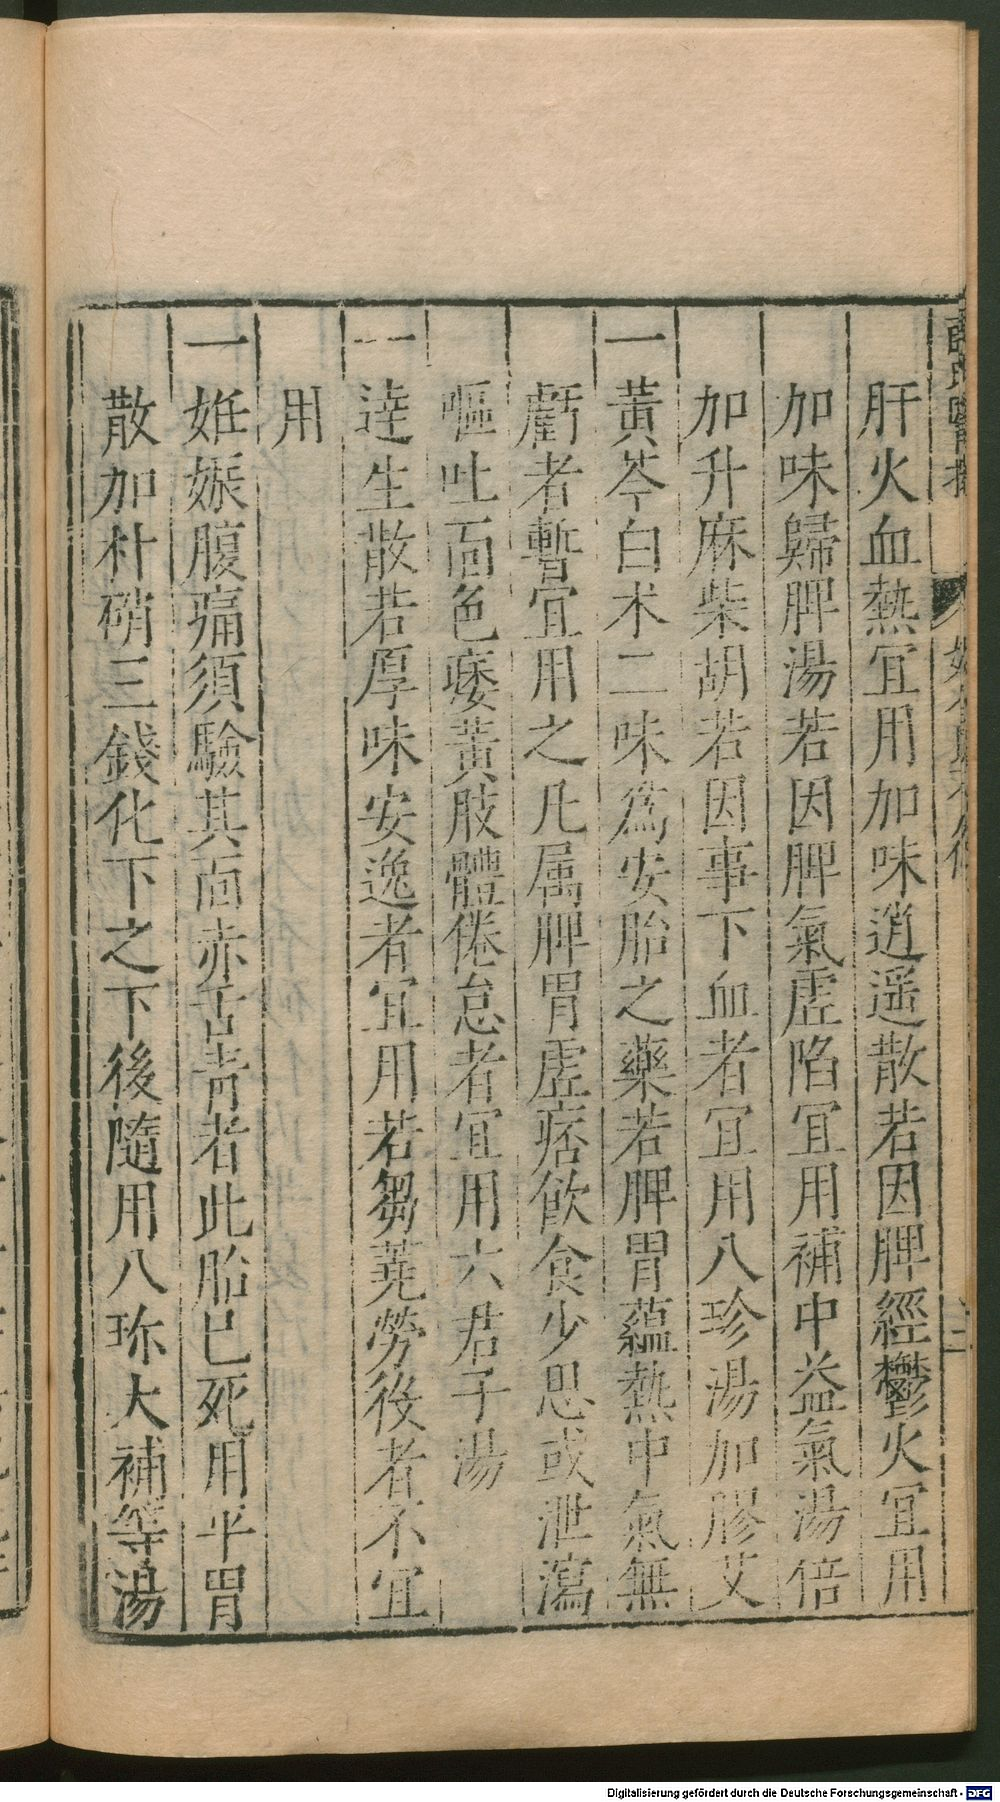 肝火血熱宜用加味逍遥散若因脾經鬱火宜用
加味歸脾湯若因脾氣虛陷宜用補中益氣湯倍
加升麻柴胡若因事下血者宜用八珍湯加膠艾
一黃芩白术二味爲安胎之藥若脾胃蘊熱中氣無
虧者暫宜用之凡属脾胃虛痞飲食少思或泄瀉
嘔吐面色痿黃肢體倦怠者宜用六君子湯
一達生散若厚味安逸者宜用若芻蕘勞役者不宜
用
一姙娠腹痛須驗其面赤舌青者此胎已死用平胃
散加朴硝三錢化下之下後隨用八珎大補等湯
Digitalisierung gefördert durch die Deutsche Forschungsgemeinschaft - DFG